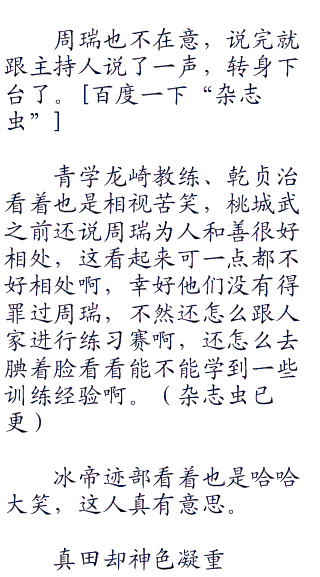 周瑞也不在意，说完就
跟主持人说了一声，转身下
台了。[百度一下“杂志
虫”]
青学龙崎教练、乾贞治
看着也是相视苦笑，桃城武
之前还说周瑞为人和善很好
相处，这看起来可一点都不
好相处啊，幸好他们没有得
罪过周瑞，不然还怎么跟人
家进行练习赛啊，还怎么去
腆着脸看看能不能学到一些
训练经验啊。（杂志虫已
更）
冰帝迹部看着也是哈哈
大笑，这人真有意思。
真田却神色凝重